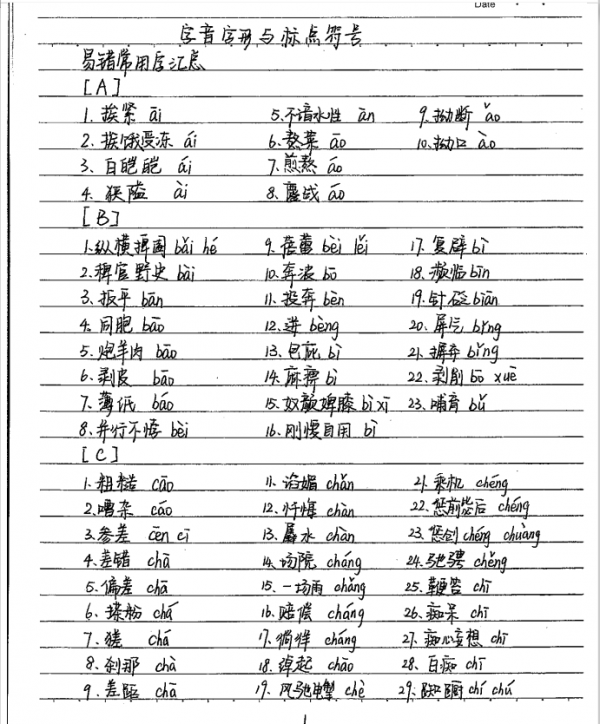 Date
字音字形与标点符号
易错常用字汇总
[A]
1. 挨紧 āi 5.不谙水性 ān 9.拗断 ǎo
2. 挨饿受冻 ái 6.熬菜 āo 10.拗口 ào
3. 白皑皑 ái 7.煎熬 áo
4. 狭隘 ài 8.鏖战 áo
[B]
1.纵横捭阖 bǎi hé 9.蓓蕾 bèi lěi 17.复辟 bì
2.稗官野史 bài 10.奔波 bō 18.濒临 bīn
3.扳平 bān 11.投奔 bèn 19.针砭 biān
4.同胞 bāo 12.迸 bèng 20.屏气 bǐng
5.炮羊肉 bāo 13.包庇 bì 21.摒弃 bǐng
6.剥皮 bāo 14.麻痹 bì 22.剥削 bō xuē
7.薄纸 báo 15.奴颜婢膝 bì xī 23.哺育 bǔ
8.并行不悖 bèi 16.刚愎自用 bì
[C]
1.粗糙 cāo 11.谄媚 chǎn 21.乘机 chéng
2.嘈杂 cáo 12.忏悔 chàn 22.惩前毖后 chéng
3.参差 cēn cī 13.羼水 chàn 23.惩创 chéng chuàng
4.差错 chā 14.场院 cháng 24.驰骋 chěng
5.偏差 chā 15.一场雨 cháng 25.鞭笞 chī
6.搽粉 chá 16.赔偿 cháng 26.痴呆 chī
7.猹 chá 17.徜徉 cháng 27.痴心妄想 chī
8.刹那 chà 18.绰起 chāo 28.白痴 chī
9.差距 chā 19.风驰电掣 chè 29.踟蹰 chí chú
1